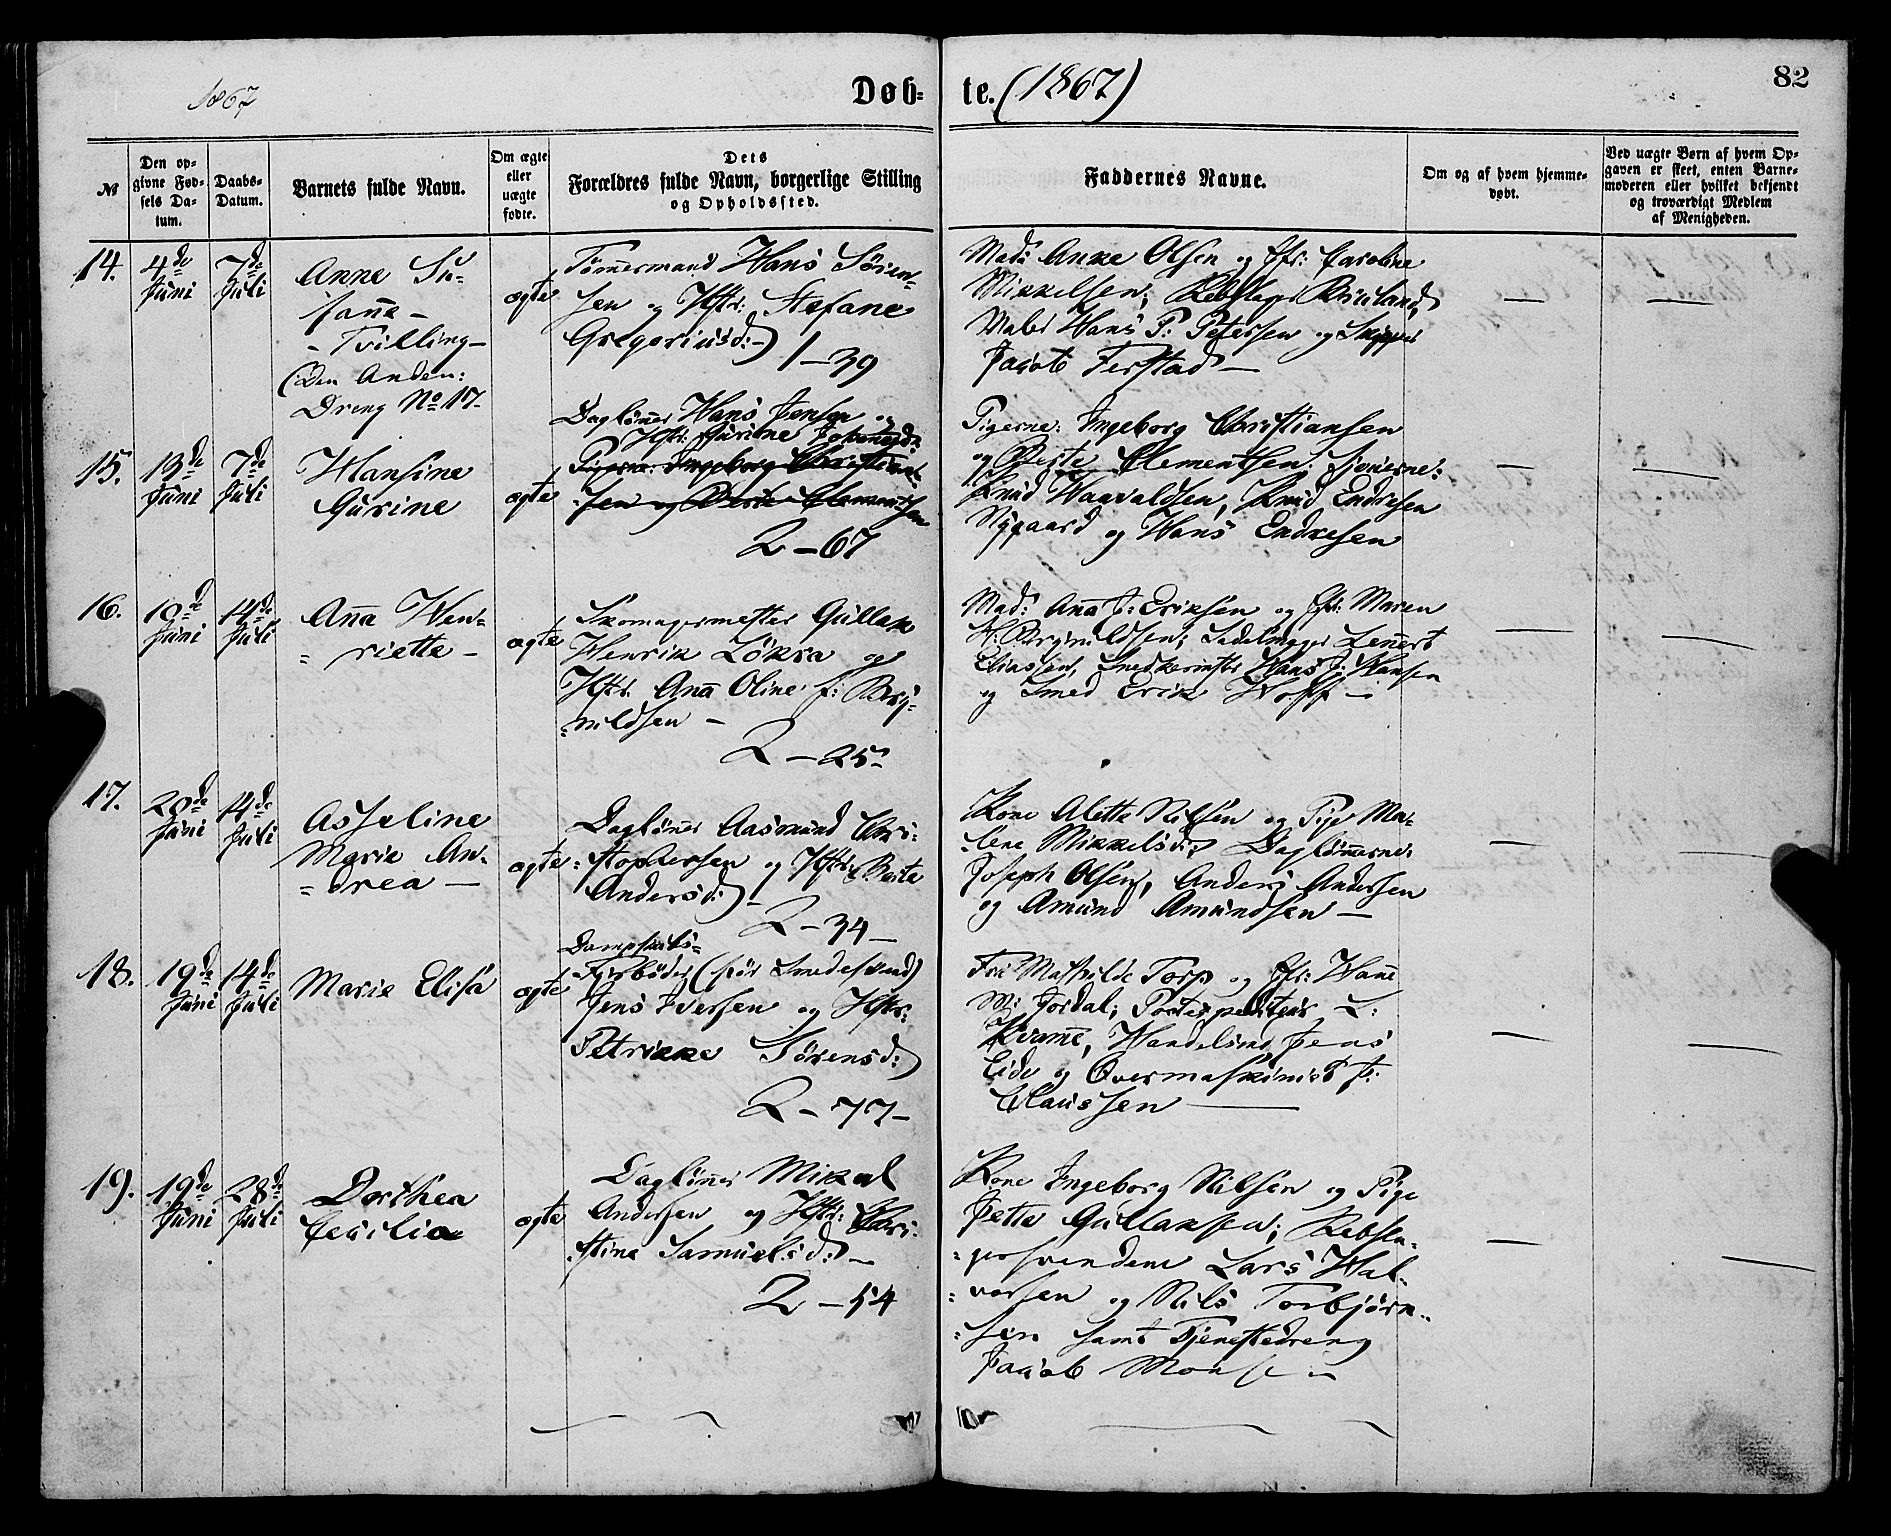 1867
Døb-
te. (1867)
82
№
Den op-
givne Fød-
sels Da-
tum.
Daabs-
Datum.
Barnets fulde Navn.
Om ægte
eller
uægte
fødte.
Dets
Forældres fulde Navn, borgerlige Stilling
og Opholdssted.
Faddernes Navne.
Om og af hvem hjemme-
døbt.
Ved uægte Børn af hvem Op-
gaven er skeet, enten Barne-
moderen eller hvilket bekjendt
og troværdigt Medlem
af Menigheden.
14.
4de
Juni
7de
Juli
Anne Su-
sanne-
- Tvilling-
(Den Anden:
Dreng No 17-
ægte
Tømmermand Hans Søren-
sen og Hstr: Stefane
Gregoriusd:-
1-39
Mad: Anne Olsen og Jfr: Caroline
Mikkelsen; Rebslager
Maler Hans P: Petersen og Skipper
Jacob Ferstad-
15.
13de
Juni
7de
Juli
Hansine
Gurine
ægte
Daglønner Hans Jensen og
Hstr: Gurine
Pigerne: Ingeborg Christian-
sen og Berte Clementsen
2-67
Pigerne: Ingeborg Christiansen
og Berte Clementsen;
Knud Haavaldsen, Knud Endresen
Nygaard og Hans Endresen
16.
10de
Juni
14de
Juli
Anna Hen-
= riette-
ægte
Skomagermester Gullak
Henrik Løkra og
Hstr. Anna Oline f: Bryn-
=nildsen-
2-25
Mad: Anna J: Eriksen og Jfr: Maren
H: Brynnildsen; Sadelmager Lennert
Eliassen, Snedkermester Hans J: Hansen
og Smed Erik Hoff-
17.
20de
Juni
14de
Juli
Asseline
Marie An-
=drea-
ægte
Daglønner Aasmund Chri-
=stophersen og Hstr: Berte
Andersd:-
2-34-
Kone Alette Nilsen og Pige Ma-
-lene Mikkelsd:; Daglønnerne:
Joseph Olsen, Anders Andersen
og Amund Amundsen-
18.
19de
Juni
14de
Juli
Marie Elisa
ægte
Dampskibs-
Fyrbøder (før Smedesvend)
Jens Iversen og Hstr:
Petrikke Sørensd:
2-77-
Fru Mathilde Torp og Jfr: Hanne
M: Jordal; Postexpeditør L:
Kramme, Handelsmd Jens
Eide og Overmaskinist J:
Claussen
19.
19de
Juni
28de
Juli
Dorthea
Cecilia
ægte
Daglønner Mikal
Andersen og Hstr: Chri-
-stine Samuelsd:-
2-54
Kone Ingeborg Nilsen og Pige
Jette Gullaksen; Rebsla-
-gersvendene Lars Hal-
-vorsen og Nils Torbjørn-
-sen samt Tjenestedreng
Jacob